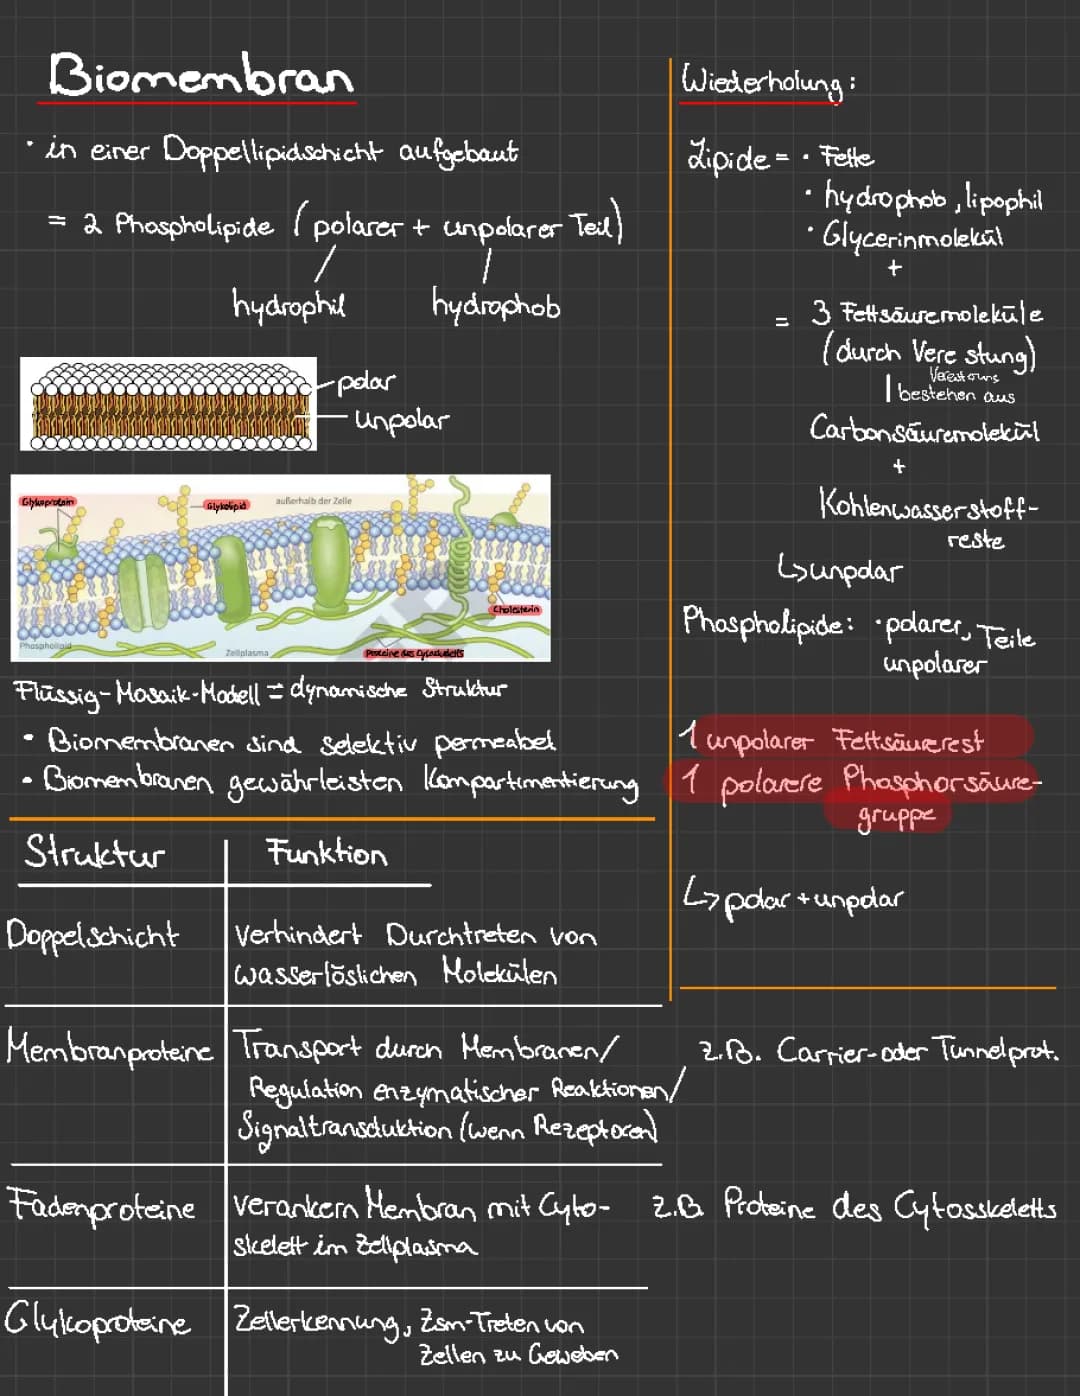 Biomembran
• in einer Doppellipidschicht aufgebaut
= 2 Phospholipide (polarer + unpolarer Teil)
hydrophil hydrophob
polar
unpolar
Glykoprotein
Glykolipid
außerhalb der Zelle
Cholesterin
Phospholipid
Zellplasma
Proteine des Cytoskeletts
Flüssig-Mosaik-Modell = dynamische Struktur
• Biomembranen sind selektiv permeabel
• Biomembranen gewährleisten Kompartimentierung
Wiederholung:
Lipide = • Fette
• hydrophob, lipophil
• Glycerinmolekül
+
= 3 Fettsäuremoleküle
(durch Vere stung)
bestehen aus
Carbonsäuremolekül
+
Kohlenwasserstoff-
reste
↳ unpolar
Phospholipide: • polarer, Teile
unpolarer
1 unpolarer Fettsäurerest
1 polarere Phosphorsäure-
gruppe
↳ polar + unpolar
Struktur Funktion
Doppelschicht Verhindert Durchtreten von
wasserlöslichen Molekülen
Membranproteine Transport durch Membranen/ z.B. Carrier- oder Tunnelprot.
Regulation enzymatischer Reaktionen/
Signaltransduktion (wenn Rezeptoren)
Fadenproteine verankern Membran mit Cyto- z.B. Proteine des Cytosskeletts
skelett im Zellplasma
Glykoproteine Zellerkennung, Zsm-Treten von
Zellen zu Geweben